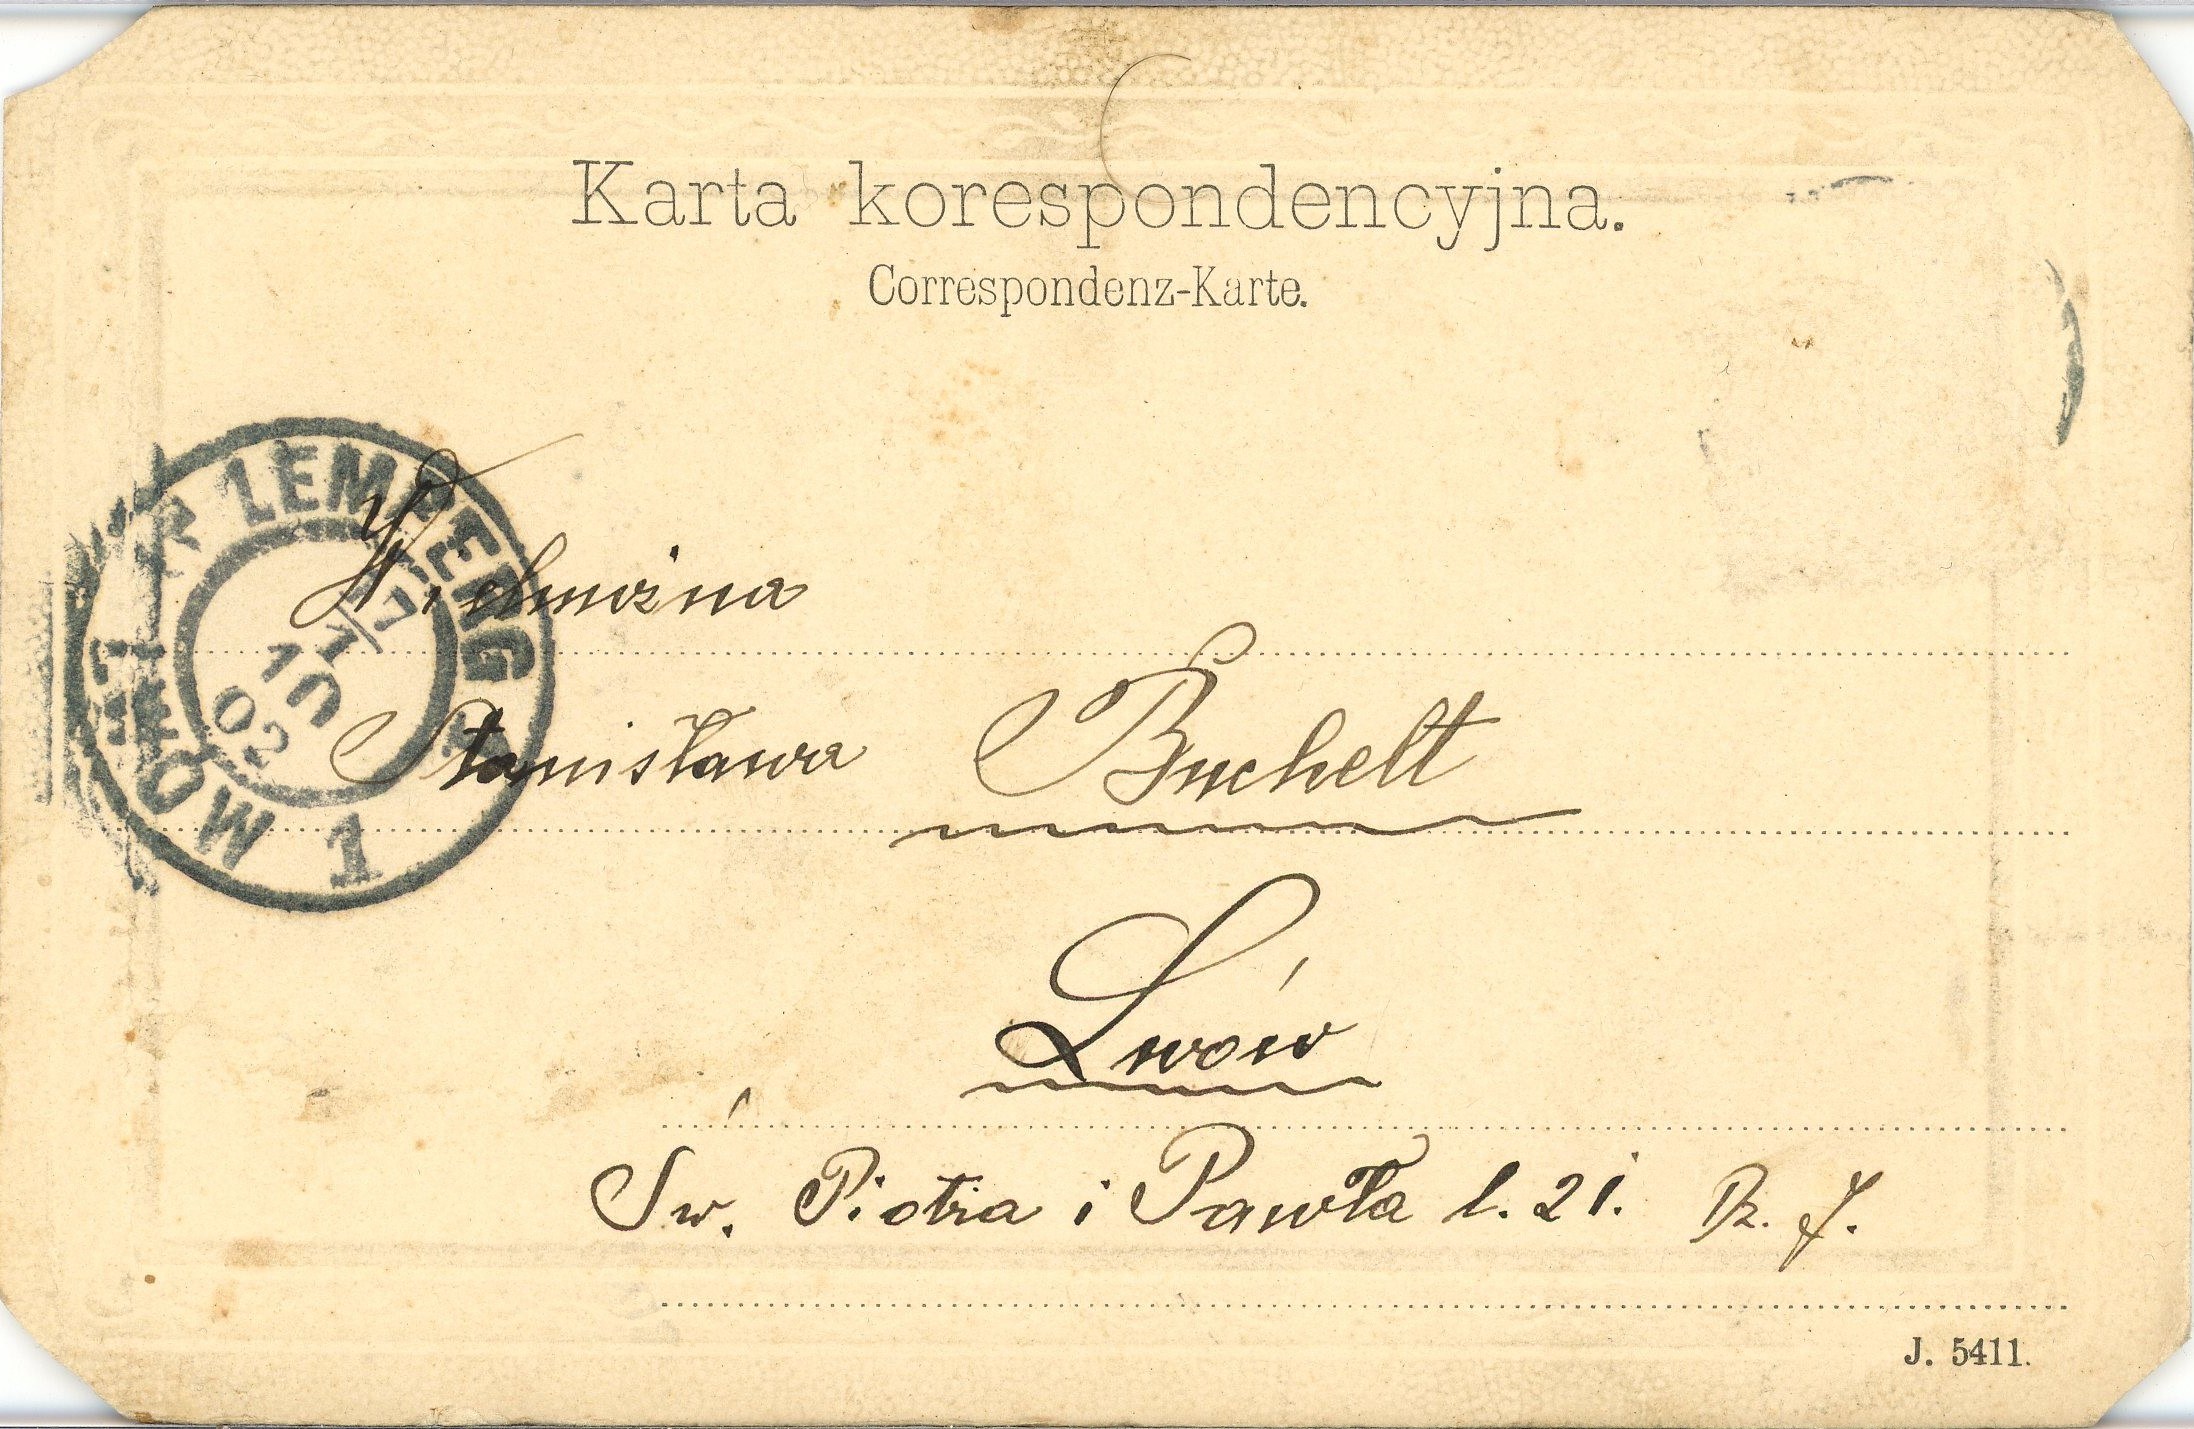 Karta korespondencyjna.
Correspondenz-Karte.
LEMBERG 1
LWÓW 1
17
10
02
Wielmożna
Stanisława Buchelt
Lwów
Św. Piotra i Pawła l. 21. Dz. J.
J. 5411.